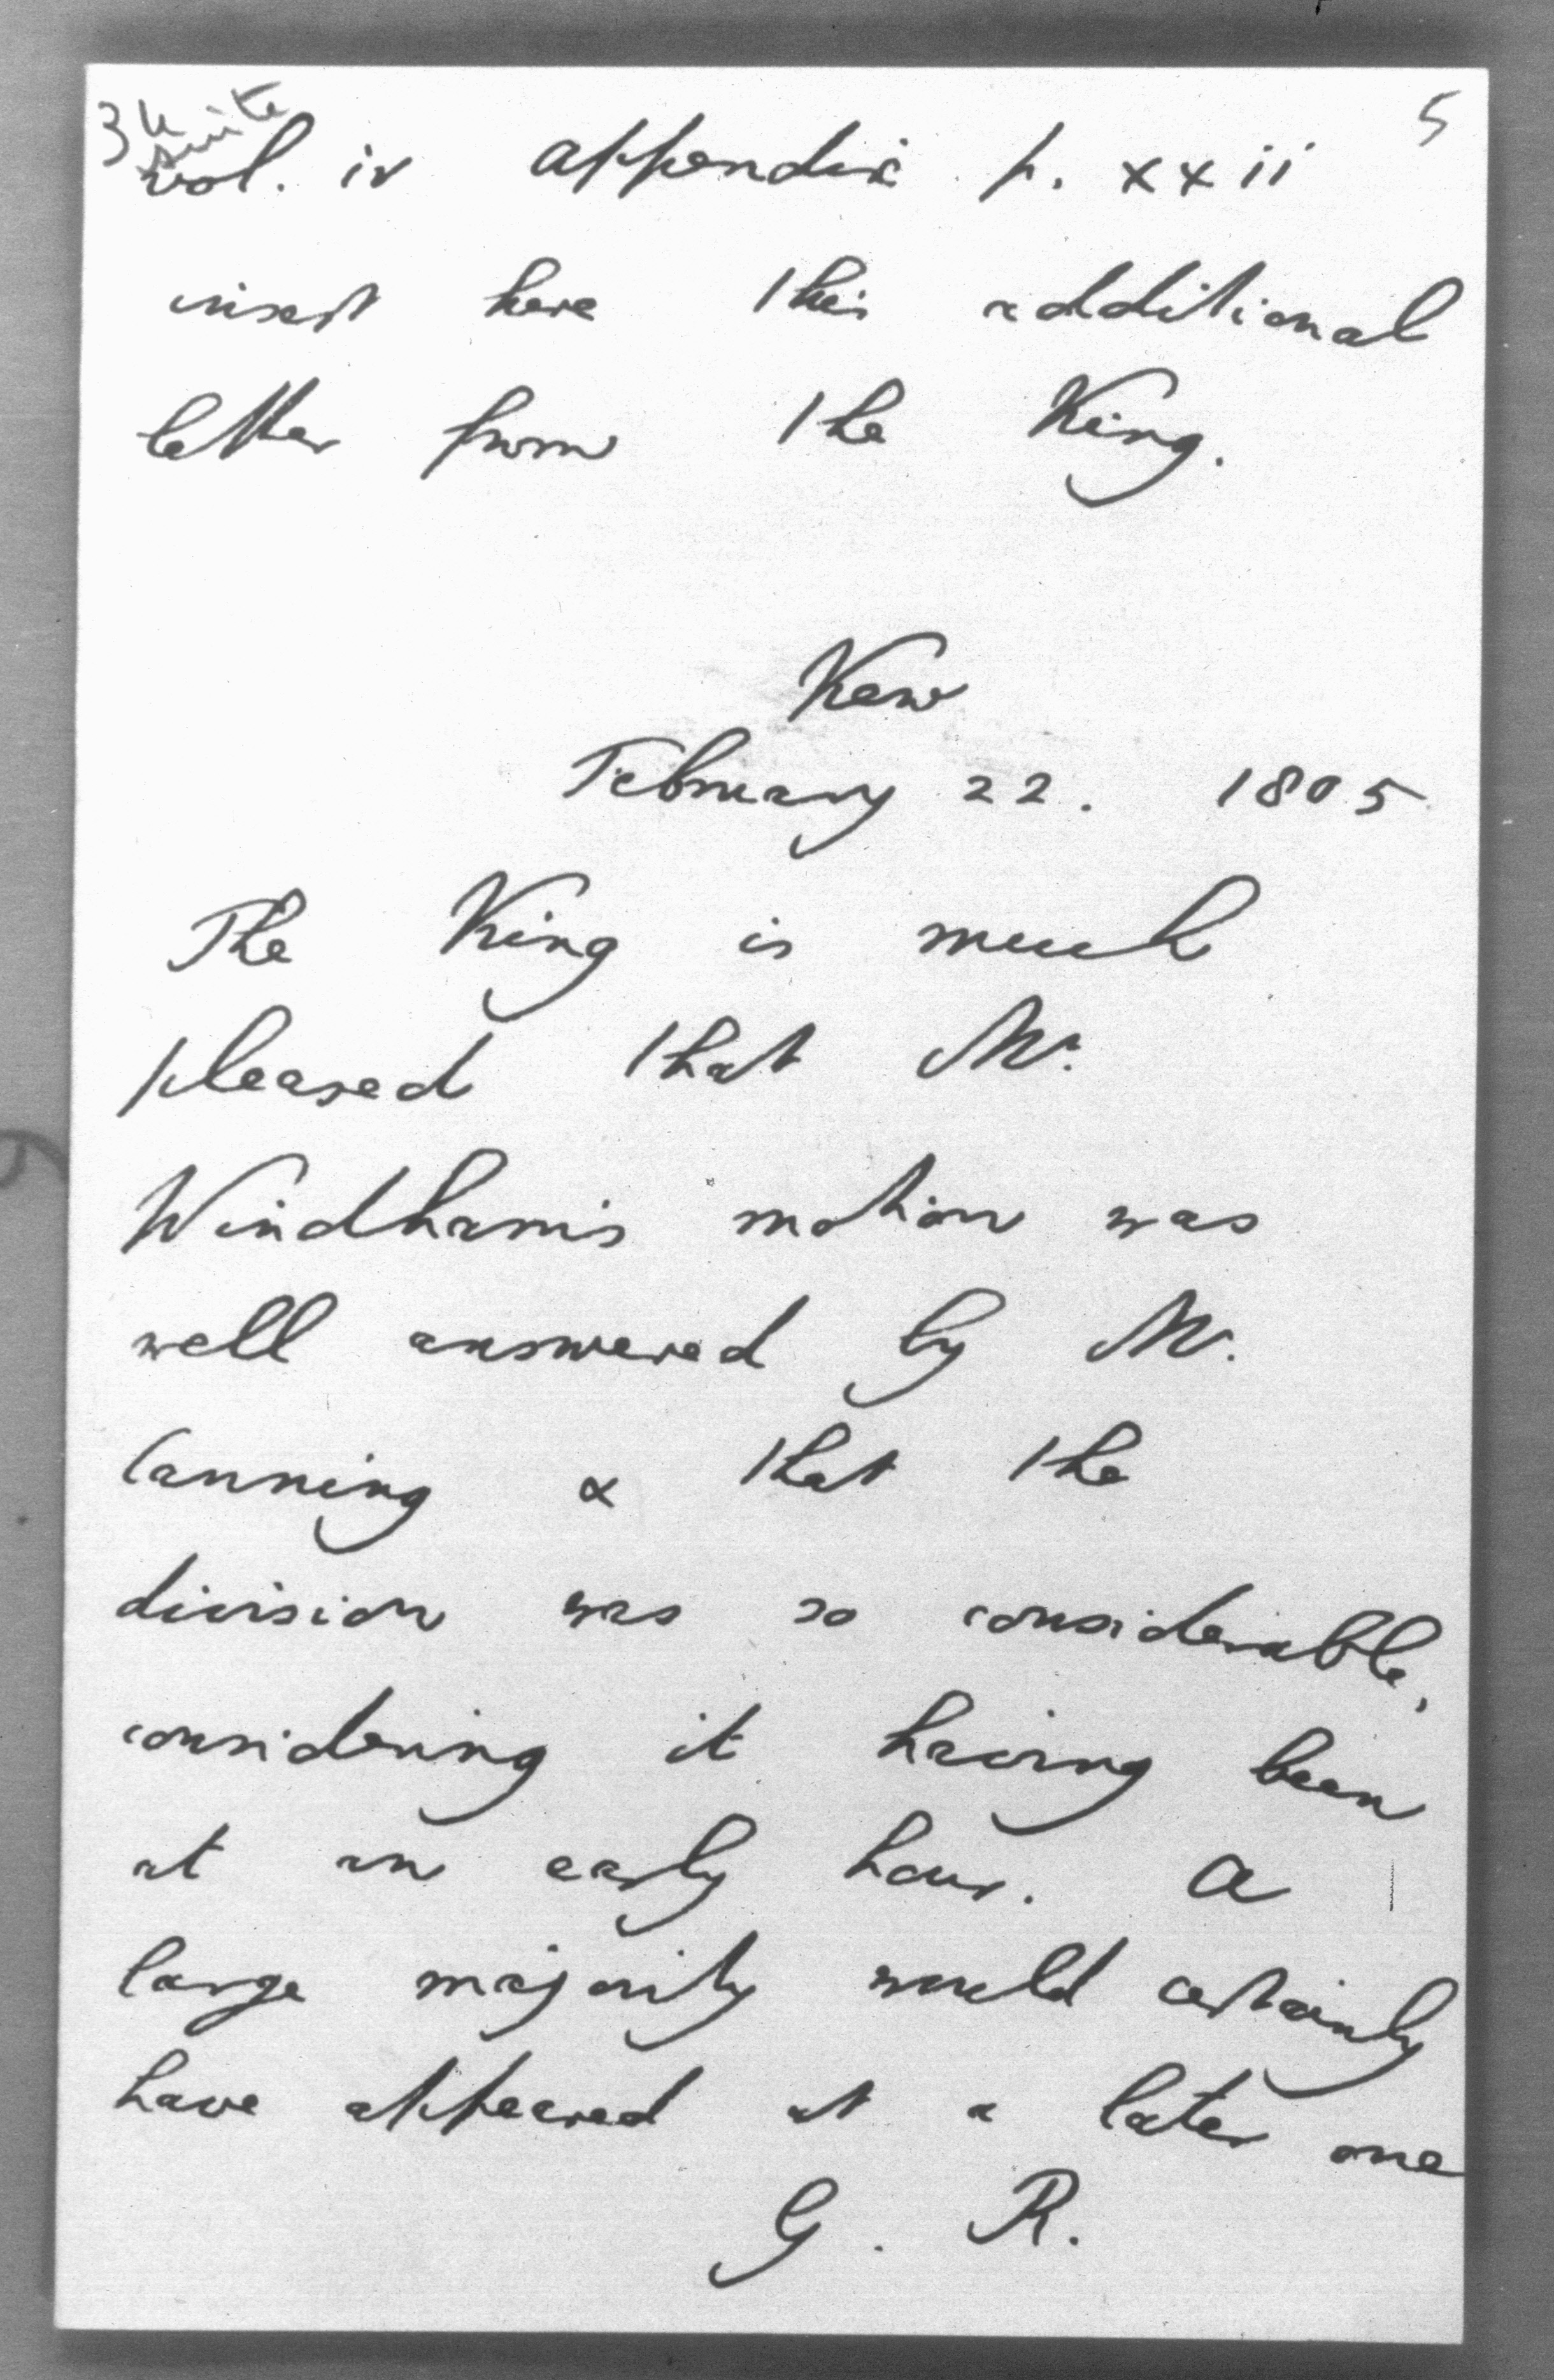 34 suite
5
vol. iv appendix p. xxii
insert here this additional
letter from the King.
Kew
February 22. 1805
The King is much
pleased that Mr.
Windham's motion was
well answered by Mr.
Canning & that the
division was so considerable,
considering it having been
at an early hour. A
large majority would certainly
have appeared at a later one
G. R.